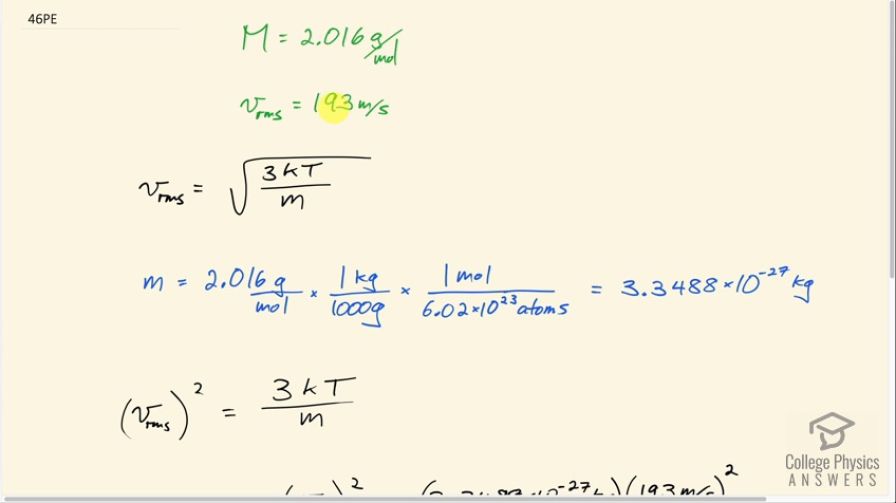 46PE
M = 2.016 g/mol
v_rms = 193 m/s
v_rms = √(3kT/m)
m = 2.016 g/mol × 1 kg/1000g × 1 mol/6.02×10^23 atoms = 3.3488×10^-27 kg
(v_rms)^2 = 3kT/m
College Physics
ANSWERS